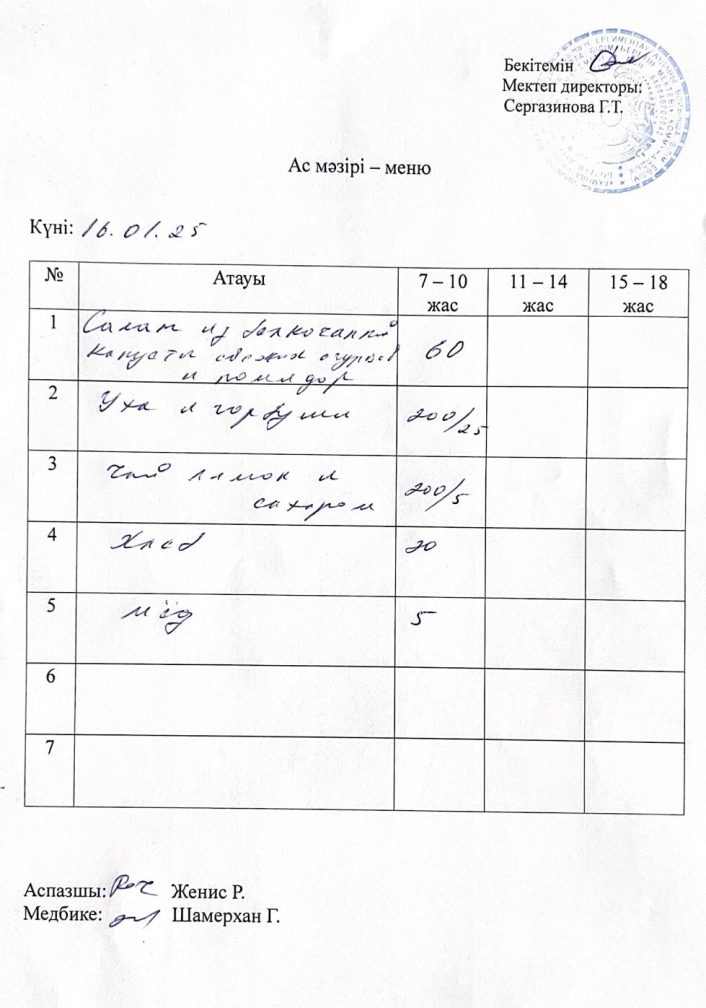 Бекітемін
Мектеп директоры:
Сергазинова Г.Т.
Ас мәзірі – меню
Күні: 16.01.25
№ Атауы 7 – 10 жас 11 – 14 жас 15 – 18 жас
1 Салат из белкочанной
капусты свежих огурцов 60
и помидор
2 Уха и горбуши 200/25
3 Чай лимон и
сахаром 200/5
4 Хлеб 20
5 мёд 5
6
7
Аспазшы: Женис Р.
Медбике: Шамерхан Г.